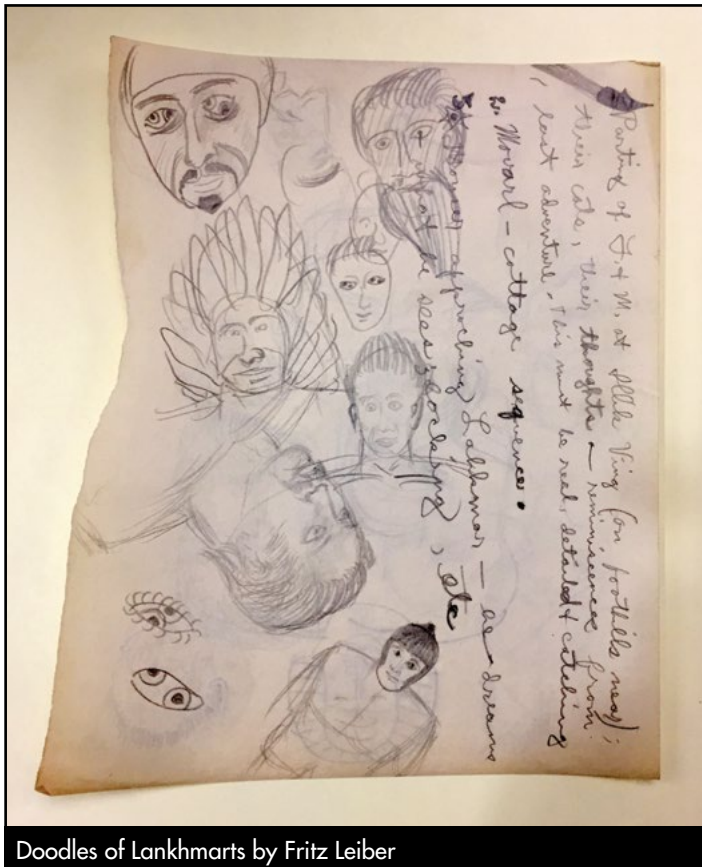 Parting of F. + M. at Ving (on foothills near);
their cats, their thoughts – reminiscences from
last adventure. This must be real, detailed + catching
2. Movarl – cottage sequence.
approching Lahkmar – as dreams
what he sees; locking, etc
Doodles of Lankhmarts by Fritz Leiber